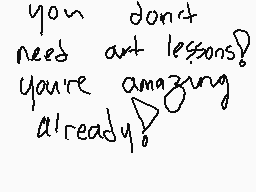 you don't
need art lessons!
you're amazing
already!